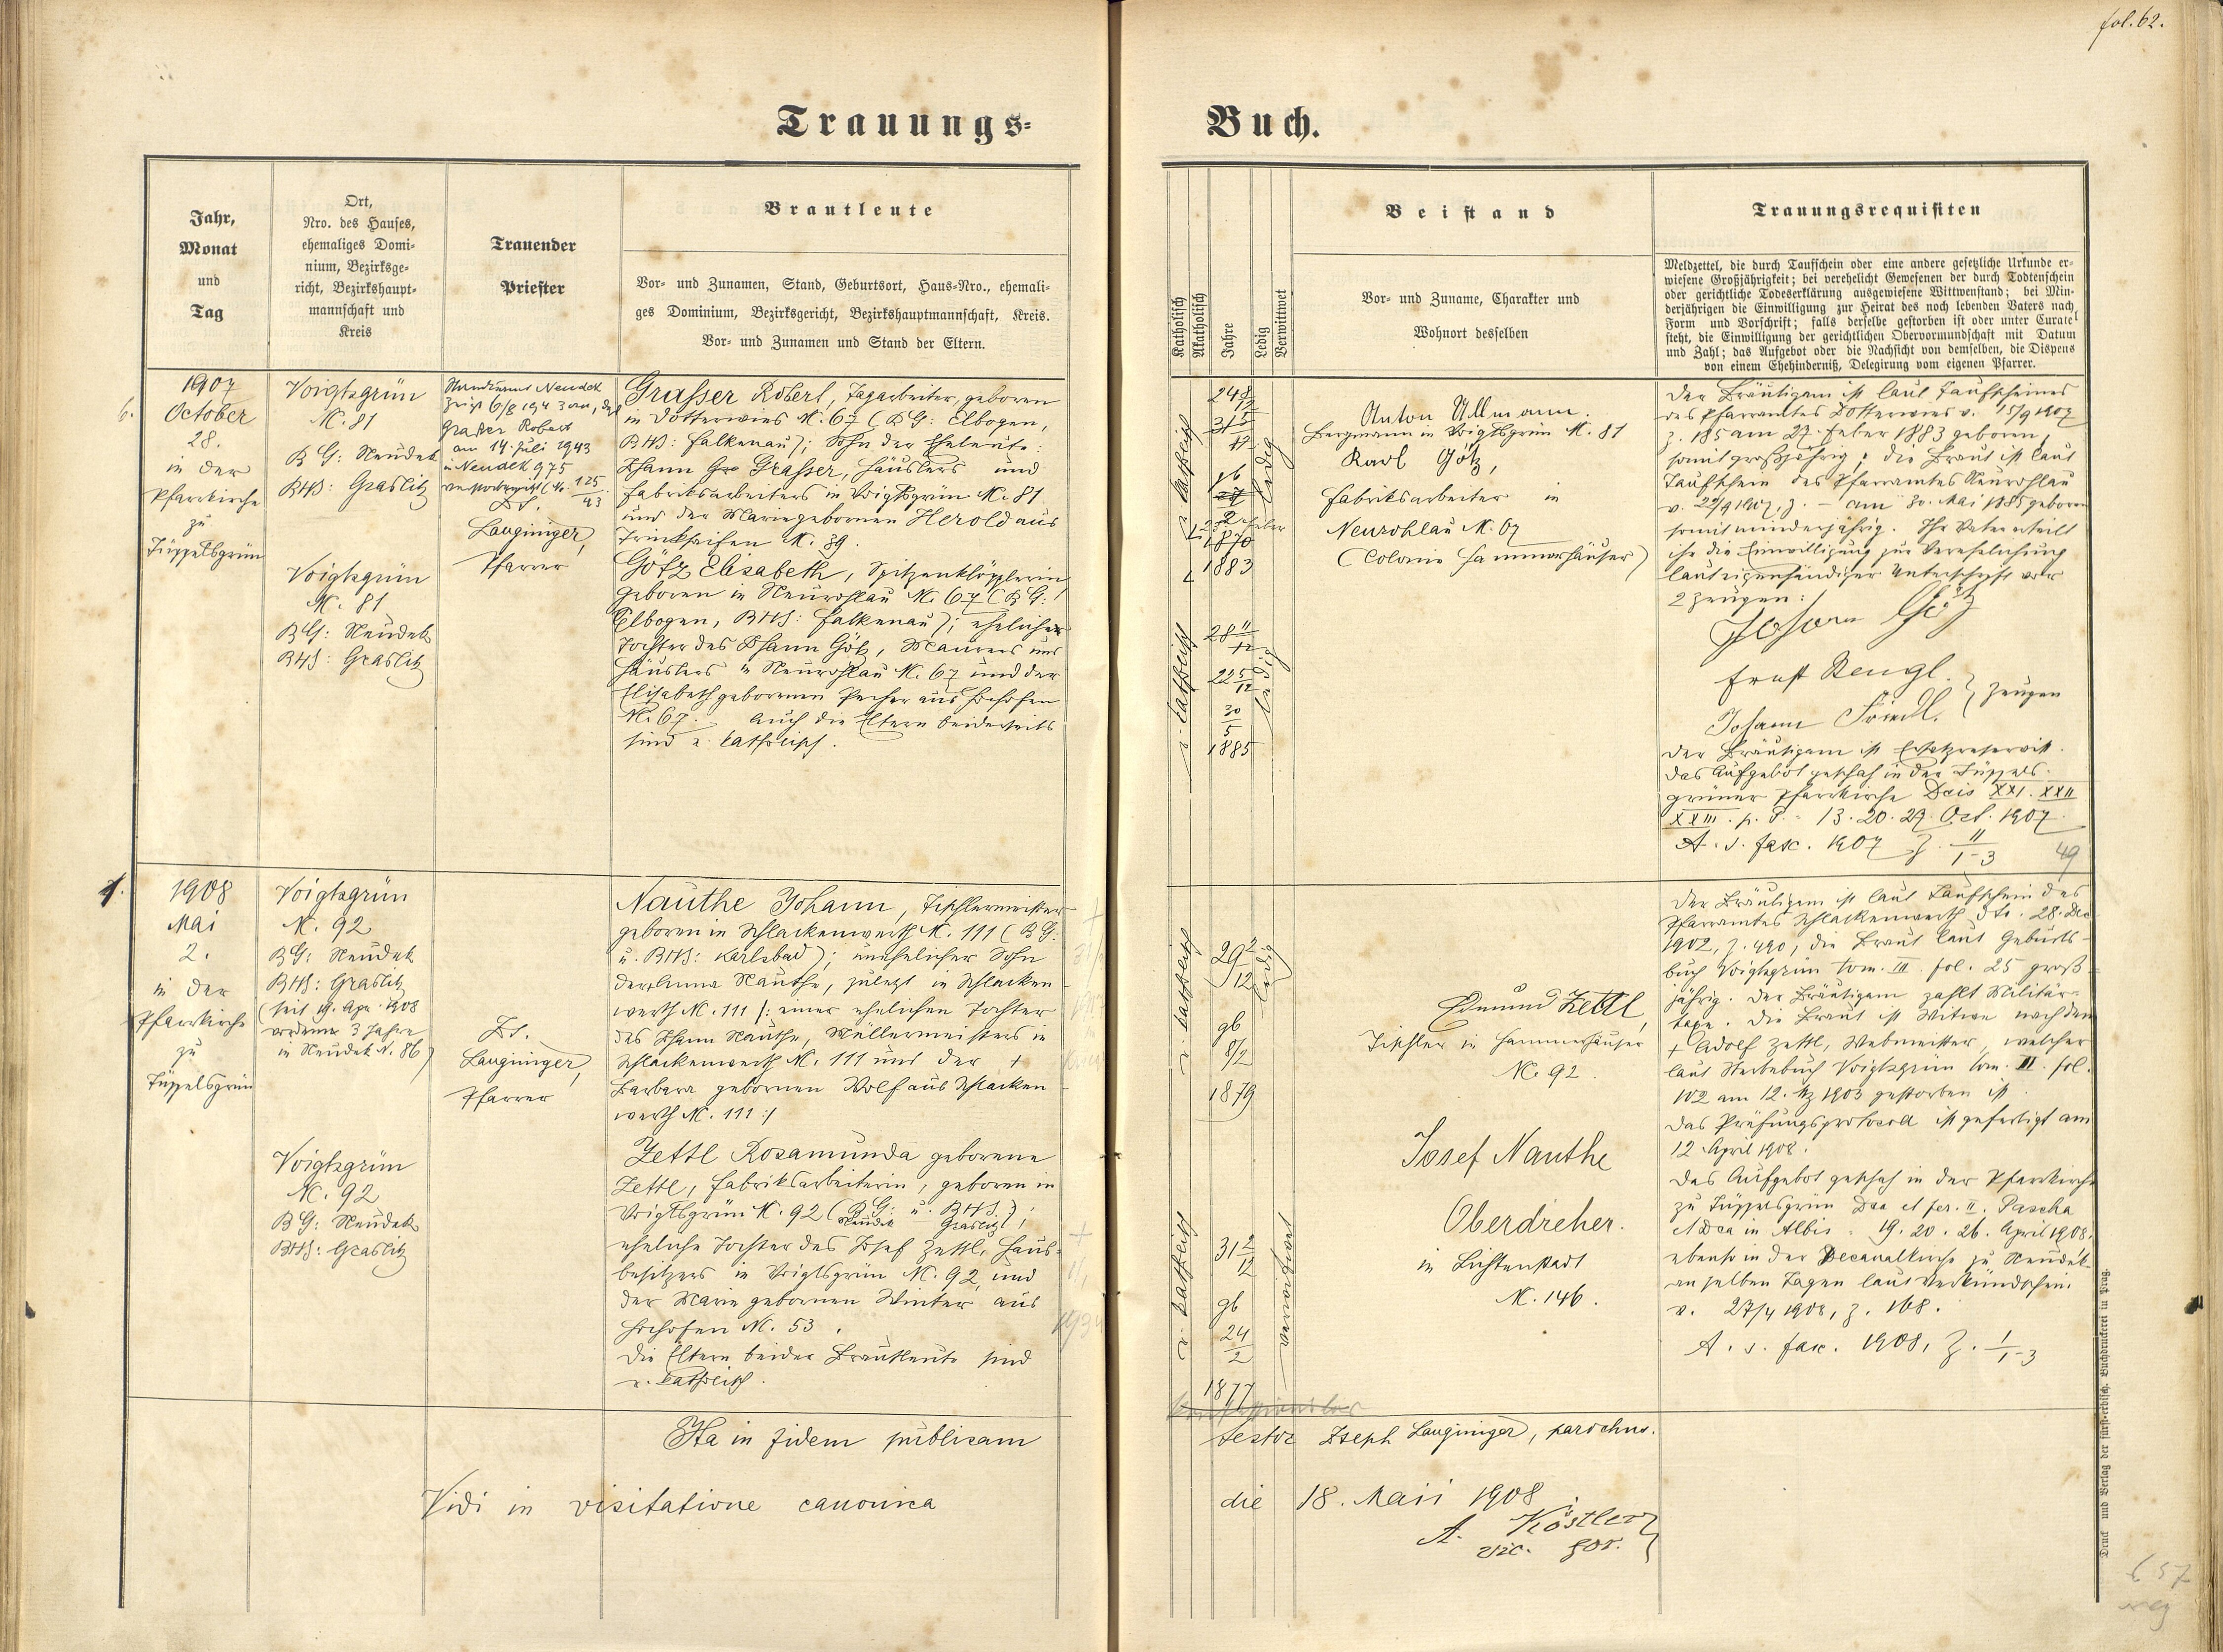 fol. 62.
Trauungs=
Buch.
Jahr,
Monat
und
Tag
Ort,
Nro. des Hauses,
ehemaliges Domi=
nium, Bezirksge=
richt, Bezirkshaupt=
mannschaft und
Kreis
Trauender
Priester
Brautleute
Vor= und Zunamen, Stand, Geburtsort, Haus=Nro., ehemali=
ges Dominium, Bezirksgericht, Bezirkshauptmannschaft, Kreis.
Vor= und Zunamen und Stand der Eltern.
Katholisch
Akatholisch
Jahre
Ledig
Verwittwet
Beistand
Vor= und Zuname, Charakter und
Wohnort desselben
Trauungsrequisiten
Meldzettel, die durch Taufschein oder eine andere gesetzliche Urkunde er=
wiesene Großjährigkeit; bei verehelicht Gewesenen der durch Todtenschein
oder gerichtliche Todeserklärung ausgewiesene Wittwenstand; bei Min=
derjährigen die Einwilligung zur Heirat des noch lebenden Vaters nach
Form und Vorschrift; falls derselbe gestorben ist oder unter Curatel
steht, die Einwilligung der gerichtlichen Obervormundschaft mit Datum
und Zahl; das Aufgebot oder die Nachsicht von demselben, die Dispens
von einem Ehehinderniß, Delegirung vom eigenen Pfarrer.
6.
1907
October
28.
in der
Pfarrkirche
zu
Tüppelsgrün
Voigtsgrün
N. 81
BG: Neudek
BHS: Graslitz
Voigtsgrün
N. 81
BG: Neudek
BHS: Graslitz
Standesamt Neudek
zeigt 6/8 1943 an, daß
Grasser Robert
am 14. Juli 1943
in Neudek 975
verstorben ist (N. 125/43
Lauginiger,
Pfarrer
Grasser Robert, Tagarbeiter, geboren
in Dotterwies N. 67 (BG: Elbogen,
BHS: Falkenau); Sohn der Eheleute:
Johann Grasser, Häuslers und
Fabriksarbeiters in Voigtsgrün N. 81
und der Marie gebornen Herold aus
Trinkseifen N. 39.
Götz Elisabeth, Spitzenklöpplerin
geboren in Neurohlau N. 67 (BG:
Elbogen, BHS: Falkenau); eheliche
Tochter des Johann Götz, Maurers und
Häuslers in Neurohlau N. 67 und der
Elisabeth geborenen Pecher aus Hochofen
N. 67. Auch die Eltern beiderseits
sind r. katholisch.
r. katholisch
24 8/12
ledig
1883
r. katholisch
28 11/12
22 5/12
ledig
30
5
1885
Anton Ullmann.
Bergmann in Voigtsgrün N. 81
Karl Götz,
Fabriksarbeiter in
Neurohlau N. 67
(Colonie Hammerhäuser)
Der Bräutigam ist laut Taufscheines
des Pfarramtes Dotterwies v. 15/9 1907
Z. 185 am 27. Feber 1883 geboren,
somit großjährig; die Braut ist laut
Taufschein des Pfarramtes Neurohlau
v. 22/9 1907, Z. – am 30. Mai 1885 geboren
somit minderjährig. Ihr Vater erteilt
ihr die Einwilligung zur Verehelichung
laut eigenhändiger Unterschrift vor
2 Zeugen:
Johann Götz
Ernst Rengl.
Johann
Zeugen
Der Bräutigam ist Ersatzreservist.
Das Aufgebot geschah in der Tüppels-
grüner Pfarrkirche Dcis XXI. XXII
XXIII. p. P. = 13. 20. 27. Oct. 1907.
A. s. fasc. 1907 Z. 11/1-3
49
7.
1908
Mai
2.
in der
Pfarrkirche
zu
Tüppelsgrün
Voigtsgrün
N. 92
BG: Neudek
BHS: Graslitz
(seit 19. Apr. 1908
vordem 3 Jahre
in Neudek N. 86)
Voigtsgrün
N. 92
BG: Neudek
BHS: Graslitz
Js.
Lauginiger,
Pfarrer
Nauthe Johann, Tischlermeister
geboren in Schlackenwerth N. 111 (BG:
u. BHS: Karlsbad); unehelicher Sohn
der Anna Nauthe, zuletzt in Schlacken
werth N. 111 /: einer ehelichen Tochter
des Johann Nauthe, Müllermeisters in
Schlackenwerth N. 111 und der +
Barbara gebornen Wolf aus Schlacken
werth N. 111 :/
Zettl Rosamunda geborene
Zettl, Fabriksarbeiterin, geboren in
Voigtsgrün N. 92 (BG: u. BHS.);
Neudek Graslitz
eheliche Tochter des Josef Zettl, Haus-
besitzers in Voigtsgrün N. 92 und
der Marie gebornen Winter aus
Hochofen N. 53.
Die Eltern beider Brautleute sind
r. katholisch.
r. katholisch
29 2/12
ledig
gb
8/2
1879
r. katholisch
31 2/12
verwitwet
gb
24
2
1877
Edmund Zettl,
Tischler in Hammerhäuser
N. 92.
Josef Nauthe
Oberdreher.
in Lichtenstadt
N. 146.
Der Bräutigam ist laut Taufschein des
Pfarramtes Schlackenwerth dto. 28. Dec
1902, Z. 490, die Braut laut Geburts-
buch Voigtsgrün tom. III fol. 25 groß-
jährig. Der Bräutigam zahlt Militär-
taxe. Die Braut ist Witwe nach dem
+ Adolf Zettl, Webmeister, welcher
laut Sterbebuch Voigtsgrün tom. III. fol.
102 am 12. Mz 1903 gestorben ist.
Das Prüfungsprotocoll ist gefertigt am
12 April 1908.
Das Aufgebot geschah in der Pfarrkirche
zu Tüppelsgrün Dca et fer. II. Pascha
et Dca in Albis = 19. 20. 26. April 1908.
ebenso in der Decanalkirche zu Neudek
an selben Tagen laut Verkündschein
v. 27/4 1908, Z. 168.
A. s. fasc. 1908, Z. 1/1-3
Ita in fidem publicam
testor Joseph Lauginiger, parochus.
Vidi in visitatione canonica
die 18. Maii 1908
A. Köstler
vic. for.
Druck und Verlag der fürst-erzbisch. Buchdruckerei in Prag.
657